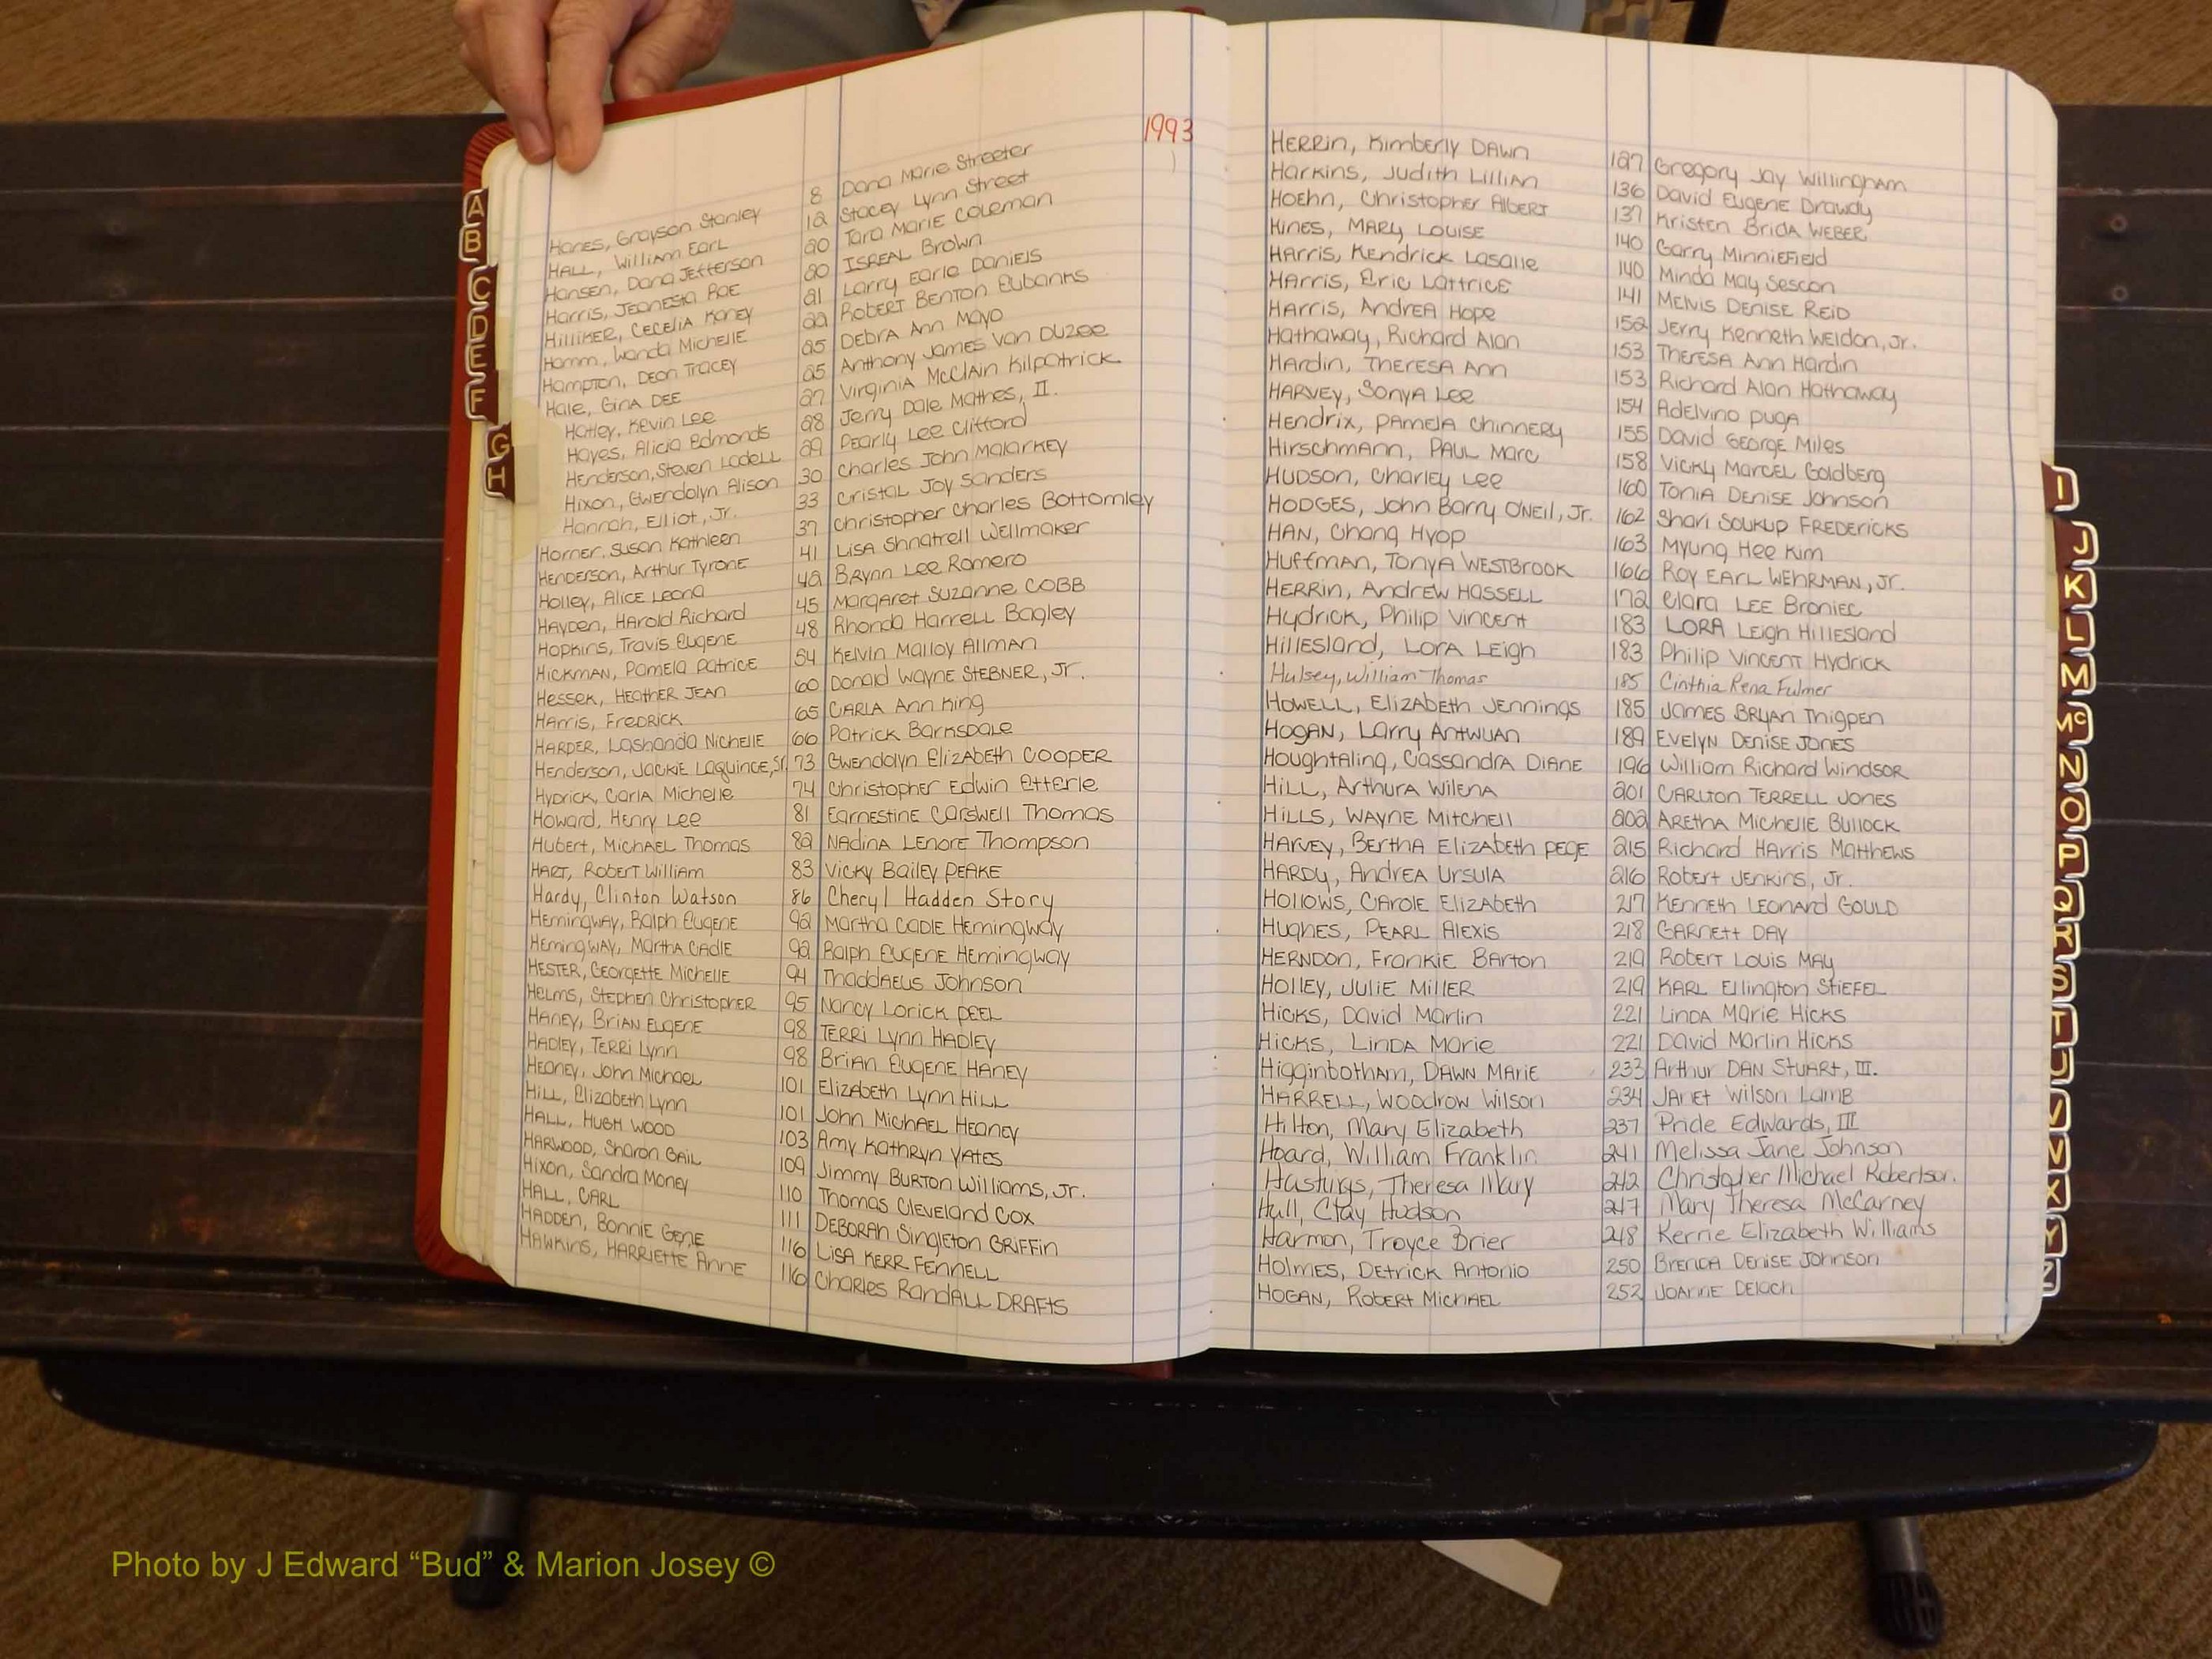 1993
Hanes, Grayson Stanley 8 Dana Marie Streeter
HALL, William Earl 12 Stacey Lynn Street
Hansen, Dana Jefferson 20 Tara Marie Coleman
Harris, Jeanesta Rae 20 ISREAL Brown
Hilliker, Cecelia Kaney 21 Larry Earle Daniels
Hamm, Wanda Michelle 22 Robert Benton Eubanks
Hampton, Deon Tracey 25 Debra Ann Mayo
Hale, Gina DEE 25 Anthony James Van Duzee
Hatley, Kevin Lee 27 Virginia McClain Kilpatrick
Hayes, Alicia Edmonds 28 Jerry Dale Mathes, II.
Henderson, Steven Ladell 29 Pearly Lee Clifford
Hixon, Gwendolyn Alison 30 Charles John Malarkey
Hannah, Elliot, Jr. 33 Cristal Joy Sanders
Horner, Susan Kathleen 37 Christopher Charles Bottomley
Henderson, Arthur Tyrone 41 Lisa Shnatrell Wellmaker
Holley, Alice Leona 42 Brynn Lee Romero
Hayden, Harold Richard 45 Margaret Suzanne COBB
Hopkins, Travis Eugene 48 Rhonda Harrell Bagley
Hickman, Pamela Patrice 54 Kelvin Malloy Allman
Hessek, Heather Jean 60 Donald Wayne STEBNER, Jr.
Harris, Fredrick 65 CARLA Ann King
HARPER, Lashanda Nichelle 66 Patrick Barksdale
Henderson, Jackie Laquince, Sr. 73 Gwendolyn Elizabeth COOPER
Hydrick, Carla Michelle 74 Christopher Edwin Etterle
Howard, Henry Lee 81 Earnestine Carswell Thomas
Hubert, Michael Thomas 82 Nadina Lenore Thompson
HART, Robert William 83 Vicky Bailey PEAKE
Hardy, Clinton Watson 86 Cheryl Hadden Story
Hemingway, Ralph Eugene 92 Martha CADLE Hemingway
Hemingway, Martha Cadle 92 Ralph Eugene Hemingway
HESTER, Georgette Michelle 94 Thaddaeus Johnson
Helms, Stephen Christopher 95 Nancy Lorick PEEL
Haney, Brian Eugene 98 TERRI Lynn HADLEY
Hadley, Terri Lynn 98 Brian Eugene HANEY
Heaney, John Michael 101 Elizabeth Lynn HILL
HILL, Elizabeth Lynn 101 John Michael Heaney
HALL, HUGH WOOD 103 Amy Kathryn YATES
HARWOOD, Sharon Gail 109 Jimmy Burton Williams, Jr.
Hixon, Sandra Money 110 Thomas Cleveland Cox
HALL, CARL 111 DEBORAH Singleton GRIFFin
HADDEN, Bonnie Gene 116 LISA KERR FENNELL
HAWKINS, HARRIETTE Anne 116 Charles Randall DRAFTS
HERRIN, Kimberly DAWN 127 Gregory Jay Willingham
Harkins, Judith Lillian 136 David Eugene Drawdy
HOEHN, Christopher Albert 137 Kristen Brida WEBER
HINES, MARY LOUISE 140 Garry Minniefield
Harris, Kendrick Lasalle 140 Minda May Sescon
HARRIS, Eric Lattrice 141 Melvis Denise Reid
Harris, Andrea Hope 152 Jerry Kenneth Weldon, Jr.
Hathaway, Richard Alan 153 Theresa Ann Hardin
Hardin, Theresa Ann 153 Richard Alan Hathaway
HARVEY, Sonya Lee 154 Adelvino Puga
Hendrix, Pamela Chinnery 155 David George Miles
Hirschmann, PAUL Marc 158 Vicky Marcel Goldberg
HUDSON, Charley Lee 160 Tonia Denise Johnson
HODGES, John Barry O'NEIL, Jr. 162 Shari SOUKUP FREDERICKS
HAN, Chang Hyop 163 Myung Hee Kim
Huffman, Tonya WESTBROOK 166 Roy EARL WEHRMAN, Jr.
HERRIN, Andrew HASSELL 172 Clara LEE Broniec
Hydrick, Philip Vincent 183 LORA Leigh Hillesland
Hillesland, Lora Leigh 183 Philip Vincent Hydrick
Hulsey, William Thomas 185 Cinthia Rena Fulmer
HOWELL, Elizabeth Jennings 185 James Bryan Thigpen
HOGAN, Larry Antwuan 189 Evelyn Denise JONES
Houghtaling, Cassandra Diane 196 William Richard Windsor
HILL, Arthura Wilena 201 CARLTON TERRELL JONES
HILLS, WAYNE Mitchell 202 ARETHA Michelle BULLOCK
HARVEY, Bertha Elizabeth PEGE 215 Richard Harris Matthews
HARDY, Andrea Ursula 216 Robert Jenkins, Jr.
Hollows, Carole Elizabeth 217 KENNETH LEONARD GOULD
HUGHES, PEARL Alexis 218 GARNETT DAY
HERNDON, Frankie Barton 219 Robert Louis MAY
HOLLEY, JULIE MILLER 219 KARL Ellington STIEFEL
Hicks, David Marlin 221 Linda Marie Hicks
Hicks, Linda Marie 221 David Marlin Hicks
Higginbotham, DAWN Marie 233 Arthur DAN STUART, III.
HARRELL, Woodrow Wilson 234 Janet Wilson Lamb
Hilton, Mary Elizabeth 237 Pride Edwards, III
Hoard, William Franklin 241 Melissa Jane Johnson
Hastings, Theresa Mary 242 Christopher Michael Robertson.
Hull, Clay Hudson 247 Mary Theresa McCarney
Harmon, Troyce Brier 248 Kerrie Elizabeth Williams
HOLMES, Detrick Antonio 250 Brenda Denise Johnson
HOGAN, Robert Michael 252 JOANNE DELOCH
A
B
C
D
E
F
G
H
I
J
K
L
M
Mc
N
O
P
Q
R
S
T
U
V
W
X
Y
Z
Photo by J Edward “Bud” & Marion Josey ©